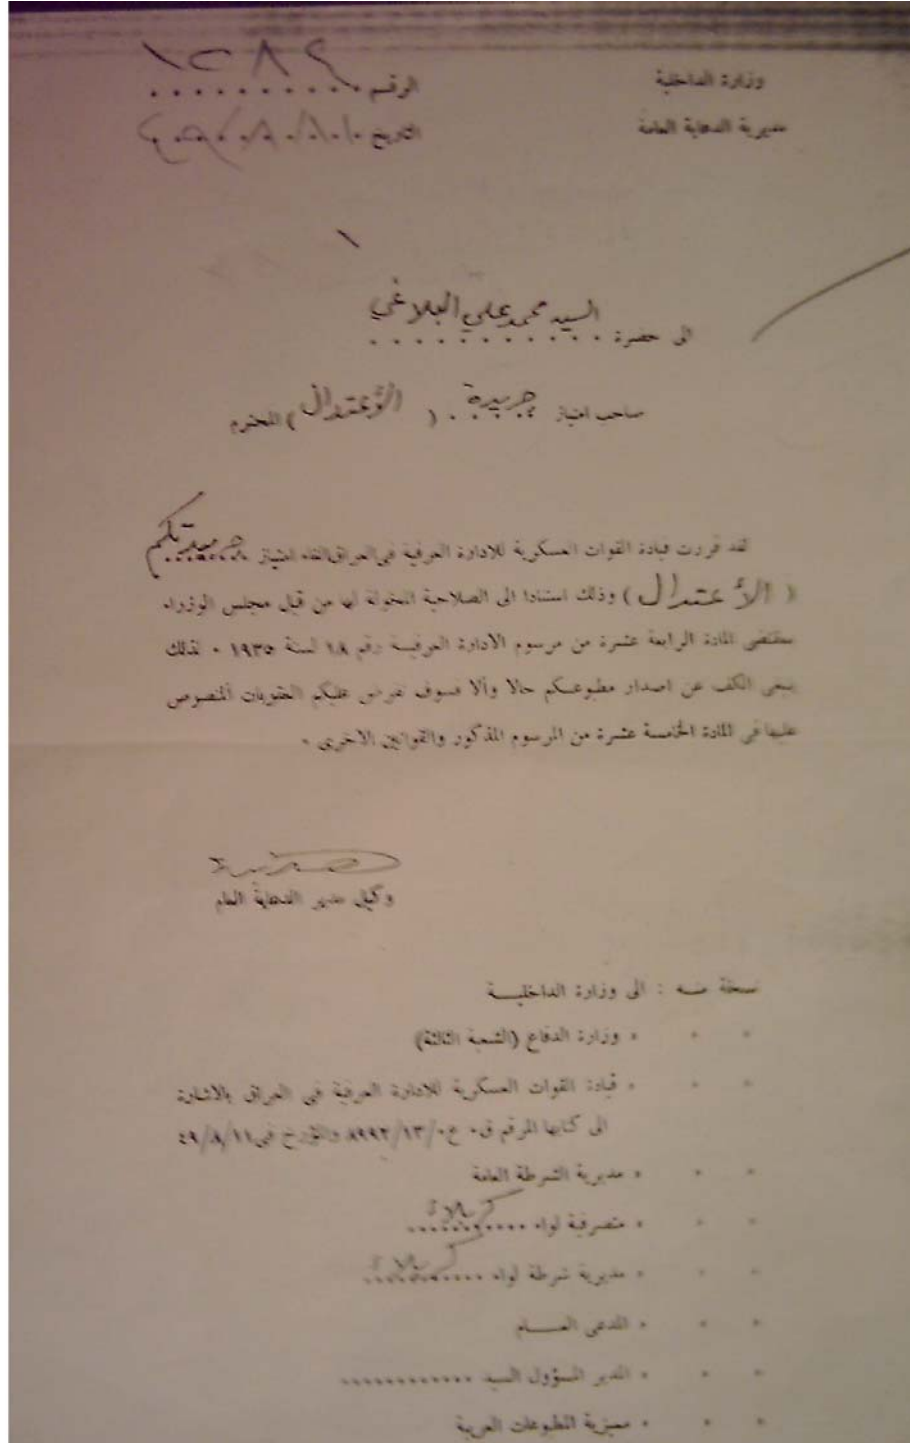 وزارة الداخلية
مديرية الدعاية العامة
الرقم
التاريخ
١
الى حضرة السيد محمد علي البلاغي
صاحب امتياز جريدة ( الأعتدال ) المحترم
لقد قررت قيادة القوات العسكرية للادارة العرفية في العراق الغاء امتياز جريدتكم
( الأعتدال ) وذلك استنادا الى الصلاحية المخولة لها من قبل مجلس الوزراء
بمقتضى المادة الرابعة عشرة من مرسوم الادارة العرفية رقم ١٨ لسنة ١٩٣٥ ٠ لذلك
ينبغي الكف عن اصدار مطبوعكم حالا والا فسوف تفرض عليكم العقوبات المنصوص
عليها في المادة الخامسة عشرة من المرسوم المذكور والقوانين الاخرى ٠
وكيل مدير الدعاية العام
نسخة منه : الى وزارة الداخليـــة
« « « وزارة الدفاع (الشعبة الثالثة)
« « « قيادة القوات العسكرية للادارة العرفية في العراق بالاشارة
الى كتابها المرقم ق٠ ع٠/١٣/٨٩٩٢ والمؤرخ في ٤٩/٨/١١
« « « مديرية الشرطة العامة
« « « متصرفية لواء كربلاء
« « « مديرية شرطة لواء كربلاء
« « « المدعي العـــام
« « « المدير المسؤول السيد ............
« « « مميزية المطبوعات العربية